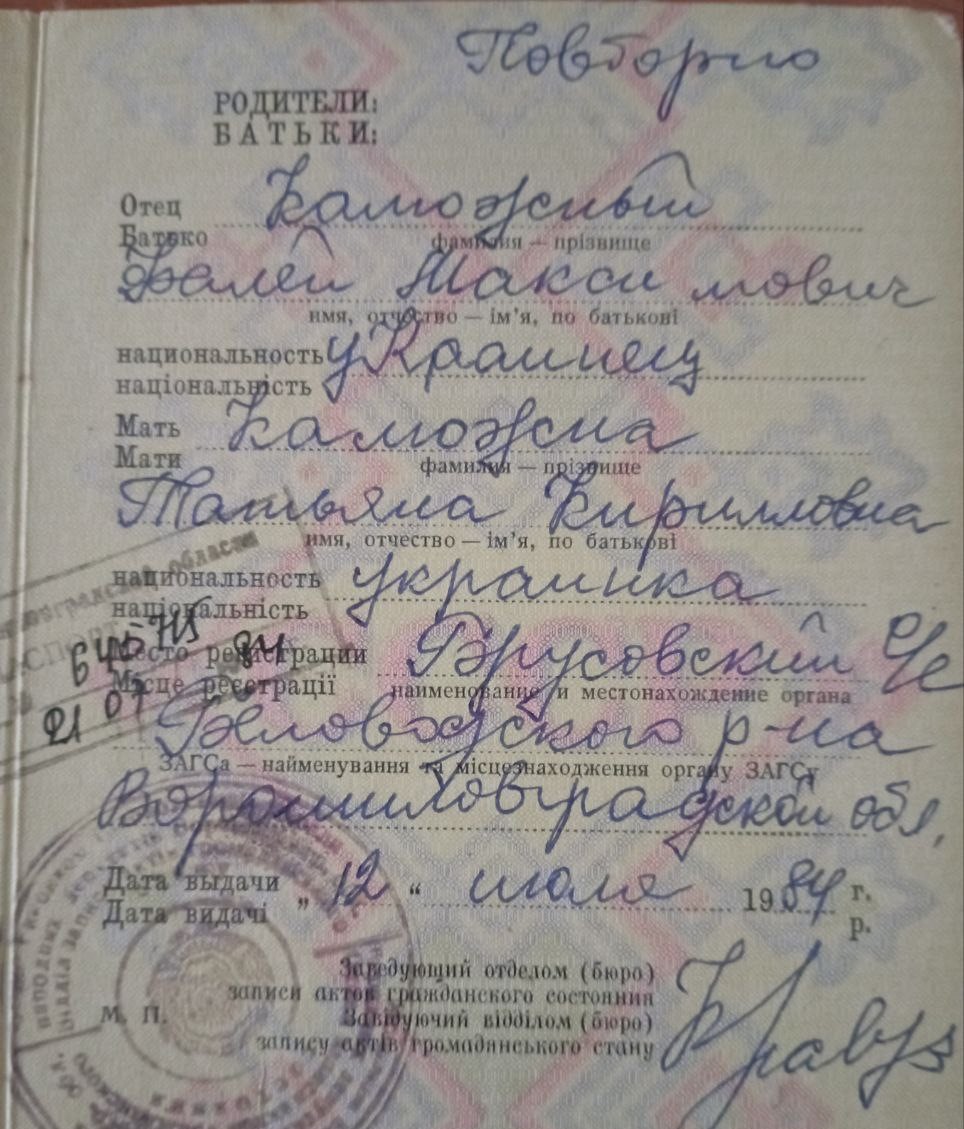 Повторно
РОДИТЕЛИ:
БАТЬКИ:
Отец Каможный
Батько
фамилия — прізвище
Фалей Максимович
имя, отчество — ім'я, по батькові
национальность украинец
національність
Мать Каможна
Мати
фамилия — прізвище
Татьяна Кирилловна
имя, отчество — ім'я, по батькові
национальность украинка
національність
Место регистрации Брусовский
Місце реєстрації
наименование и местонахождение органа
Беловодского р-на
ЗАГСа — найменування та місцезнаходження органу ЗАГСу
Ворошиловградской обл.
Дата выдачи „ 12 “ июля 1984 г.
Дата видачі р.
Заведующий отделом (бюро)
записи актов гражданского состояния
М. П.
Завідуючий відділом (бюро)
запису актів громадянського стану